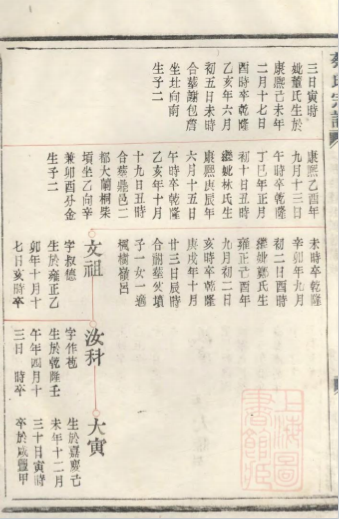 三日寅時
妣董氏生於
康熙己未年
二月十七日
酉時卒乾隆
乙亥年六月
初五日未時
合葬謝包舊
坐址向南
生子二
康熙乙酉年
九月十三日
午時卒乾隆
丁巳年正月
初十日丑時
繼妣林氏生
康熙庚辰年
六月十五日
午時卒乾隆
乙亥年十月
十九日丑時
合葬鼎邑二
都大蘭桐柴
墳坐乙向辛
兼卯酉分金
生子二
未時卒乾隆
辛卯年九月
初二日酉時
繼妣鄒氏生
雍正己酉年
九月初二日
亥時卒乾隆
庚戌年十月
廿三日辰時
合墓墳
子一女一適
楓樹嶺呂
文祖
字叔德
生於雍正乙
卯年十月十
七日亥時卒
汝科
字作苞
生於乾隆壬
午年四月十
三日 時卒
大寅
生於嘉慶己
未年十二月
三十日寅時
卒於咸豐甲
上海圖書館藏